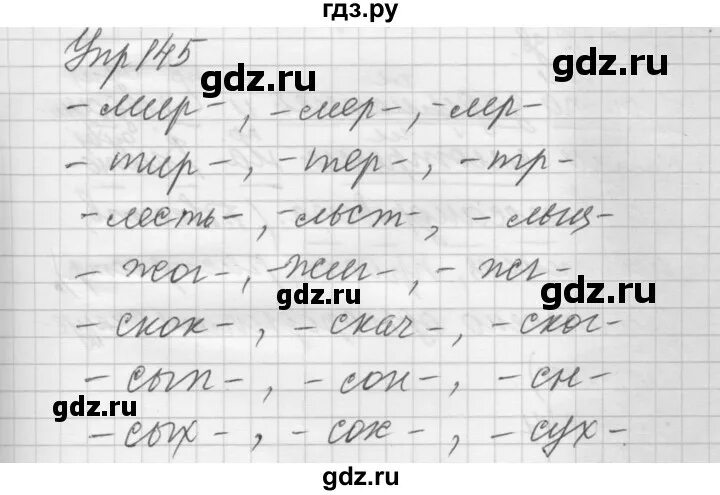 гдз.ру
Упр 145
gdz.ru
gdz.ru
-мир-, -мер-, -мр-
-тир-, -тер-, -тр-
-лесть-, -льст-, -льщ-
-жог-, -жиг-, -жг-
gdz.ru
gdz.ru
-скок-, -скач-, -скоч-
-сып-, -сон-, -сн-
gdz.ru
-сых-, -сох-, -сух-
gdz.ru
gdz.ru